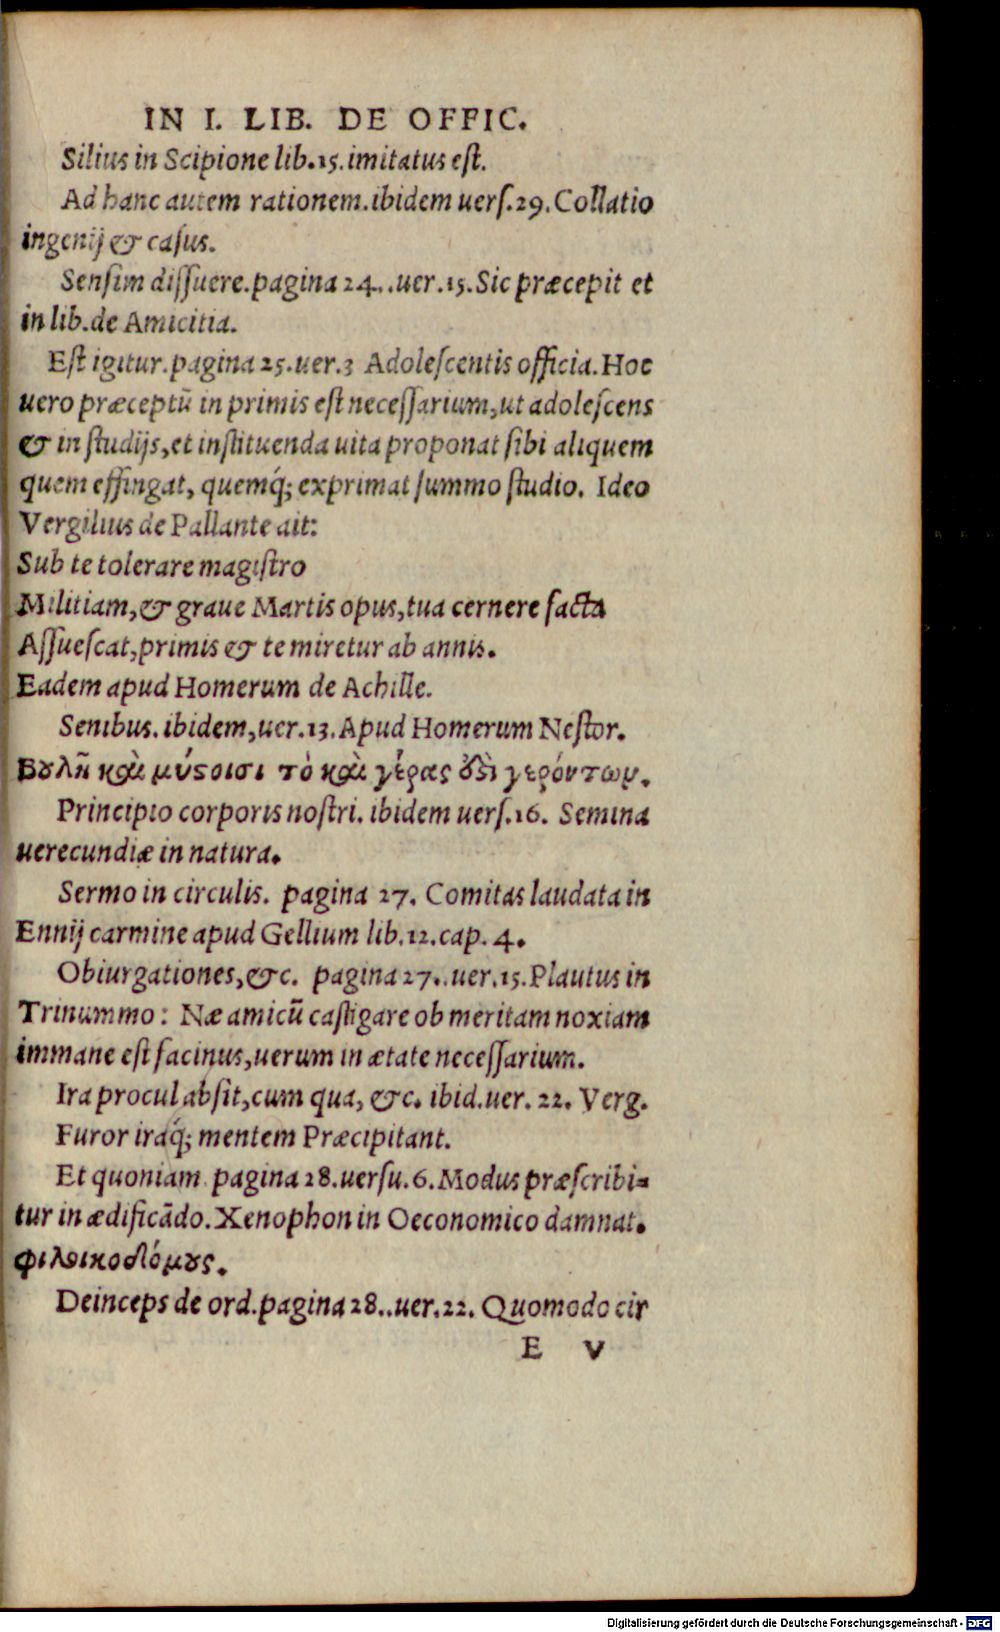 IN I. LIB. DE OFFIC.
Silius in Scipione lib.15.imitatus eſt.
Ad hanc autem rationem.ibidem uerſ.29.Collatio
ingenij & caſus.
Senſim diſſuere.pagina 24..uer.15.Sic præcepit et
in lib.de Amicitia.
Eſt igitur.pagina 25.uer.3 Adoleſcentis officia.Hoc
uero præceptū in primis eſt neceſſarium,ut adoleſcens
& in ſtudijs,et inſtituenda uita proponat ſibi aliquem
quem effingat, quemq́; exprimat ſummo ſtudio. Ideo
Vergilius de Pallante ait:
Sub te tolerare magiſtro
Militiam,& graue Martis opus,tua cernere facta
Aſſueſcat,primis & te miretur ab annis.
Eadem apud Homerum de Achille.
Senibus. ibidem,uer.13.Apud Homerum Neſtor.
Βουλῆ καὶ μύθοισι τὸ καὶ γέρας ἐστὶ γερόντων.
Principio corporis noſtri. ibidem uerſ.16. Semina
uerecundiæ in natura.
Sermo in circulis. pagina 27. Comitas laudata in
Ennij carmine apud Gellium lib.12.cap. 4.
Obiurgationes,&c. pagina 27..uer.15.Plautus in
Trinummo: Næ amicū caſtigare ob meritam noxiam
immane eſt facinus,uerum in ætate neceſſarium.
Ira procul abſit,cum qua, &c. ibid.uer. 22. Verg.
Furor iraq́; mentem Præcipitant.
Et quoniam. pagina 28.uerſu.6.Modus præſcribi-
tur in ædificādo.Xenophon in Oeconomico damnat.
φιλοικοδόμους.
Deinceps de ord.pagina 28..uer.22. Quomodo cir
E v
Digitalisierung gefördert durch die Deutsche Forschungsgemeinschaft - DFG